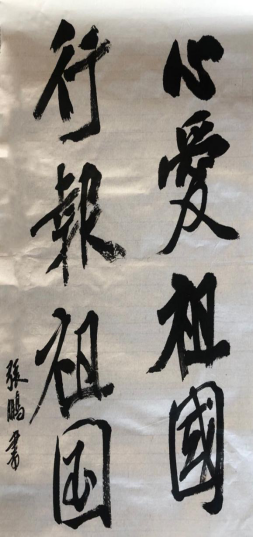 心愛祖國
行報祖国
張鵬書